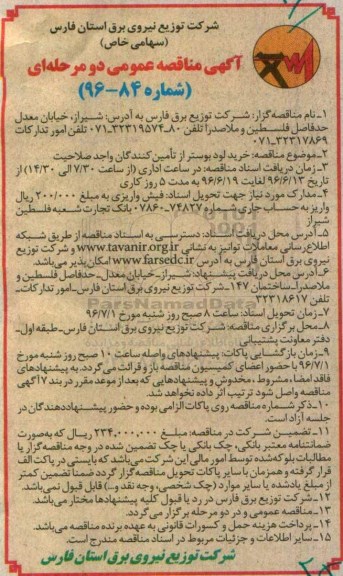 شرکت توزیع نیروی برق استان فارس
(سهامی خاص)
آگهی مناقصه عمومی دو مرحله‌ای
(شماره ۸۴-۹۶)
۱-نام مناقصه‌گزار: شرکت توزیع برق فارس به آدرس: شیراز، خیابان معدل
حدفاصل فلسطین و ملاصدرا تلفن ۸۰-۳۲۳۱۹۵۷۴-۰۷۱ تلفن امور تدارکات
۳۲۳۱۷۸۶۹-۰۷۱
۲-موضوع مناقصه: خرید لود بوستر از تأمین‌کنندگان واجد صلاحیت
۳-زمان دریافت اسناد مناقصه: در ساعت اداری (از ساعت ۷/۳۰ الی ۱۴/۳۰) از
تاریخ ۹۶/۶/۱۳ لغایت ۹۶/۶/۱۹ به مدت ۵ روز کاری
۴-مدارک مورد نیاز جهت تحویل اسناد: فیش واریزی به مبلغ ۲۰۰/۰۰۰ ریال
واریز به حساب جاری شماره ۷۴۸۲۷-۰۷۸۶۰ بانک تجارت شعبه فلسطین
شیراز
۵-آدرس محل دریافت اسناد: دسترسی به اسناد مناقصه از طریق شبکه
اطلاع‌رسانی معاملات توانیر به نشانی www.tavanir.org.ir و شرکت توزیع
نیروی برق استان فارس به آدرس www.farsedc.ir امکان‌پذیر می‌باشد.
۶-آدرس محل دریافت پیشنهاد: شیراز-خیابان معدل-حدفاصل فلسطین و
ملاصدرا-ساختمان ۱۴۷-شرکت توزیع نیروی برق استان فارس-امور تدارکات-
تلفن ۳۲۳۱۸۶۱۷
۷-زمان تحویل اسناد: ساعت ۸ صبح روز شنبه مورخ ۹۶/۷/۱
۸-محل برگزاری مناقصه: شرکت توزیع نیروی برق استان فارس-طبقه اول-
دفتر معاونت پشتیبانی
۹-زمان بازگشایی پاکات: پیشنهادهای واصله ساعت ۱۰ صبح روز شنبه مورخ
۹۶/۷/۱ با حضور اعضای کمیسیون مناقصه باز و قرائت می‌گردد. به پیشنهادهای
فاقد امضاء، مشروط، مخدوش و پیشنهادهایی که بعد از موعد مقرر در بند ۷ آگهی
مناقصه واصل شود ترتیب اثر داده نخواهد شد.
۱۰-ذکر شماره مناقصه روی پاکات الزامی بوده و حضور پیشنهاددهندگان در
جلسه آزاد است.
۱۱-تضمین شرکت در مناقصه: مبلغ ۲۳۴,۰۰۰,۰۰۰ ریال که به‌صورت
ضمانتنامه معتبر بانکی، چک بانکی یا چک تضمین شده در وجه مناقصه‌گزار یا
مطالبات بلوکه‌شده توسط امور مالی این شرکت می‌باشد که بایستی در پاکت الف
قرار گرفته و همزمان با سایر پاکات تحویل مناقصه‌گزار گردد ضمنا تضمین کمتر
از مبلغ یادشده یا سایر موارد (چک شخصی، وجه نقد و...) قابل قبول نمی‌باشد.
۱۲-شرکت توزیع برق فارس در رد یا قبول کلیه پیشنهادها مختار می‌باشد.
۱۳-مناقصه عمومی و در دو مرحله برگزار می‌گردد.
۱۴-پرداخت هزینه حمل و کسورات قانونی به عهده برنده مناقصه می‌باشد.
۱۵-سایر اطلاعات و جزئیات مربوط در اسناد مناقصه مندرج است.
شرکت توزیع نیروی برق استان فارس